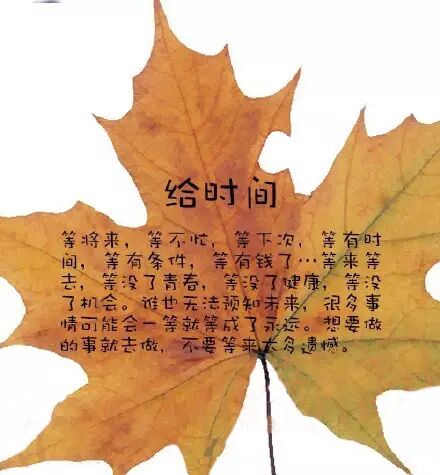 给时间
等将来，等不忙，等下次，等有时
间，等有条件，等有钱了…等来等
去，等没了青春，等没了健康，等没
了机会。谁也无法预知未来，很多事
情可能会一等就等成了永远。想要做
的事就去做，不要等来太多遗憾。